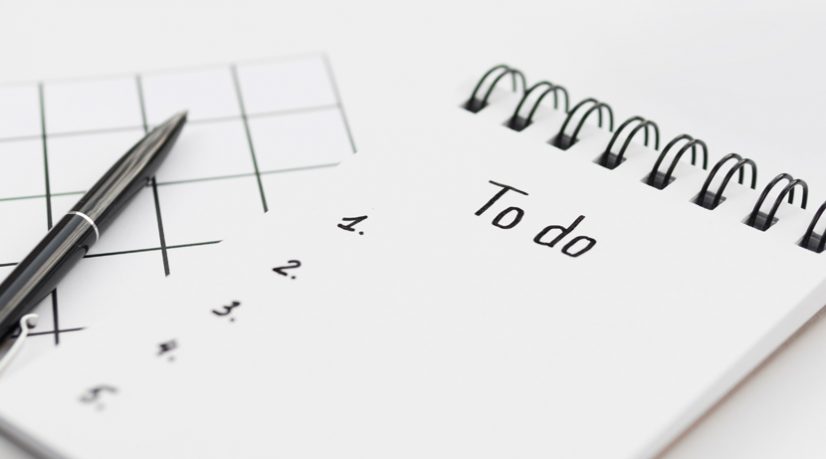 To do
1.
2.
3.
4.
5.